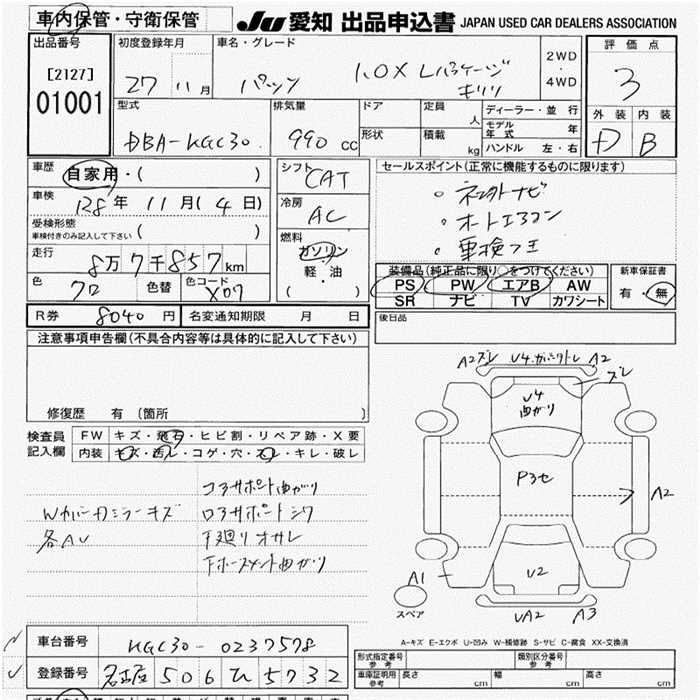 車内保管・守衛保管 JU 愛知 出品申込書 JAPAN USED CAR DEALERS ASSOCIATION
出品番号 初度登録年月 車名・グレード 2WD ・ 4WD 評価点
[2127] 27 11 月 パッソ 1.0X Lパッケージ キリリ 3
01001 型式 排気量 ドア 定員 人 ディーラー・並行 外装 内装
DBA-KGC30 990 cc 形状 積載 kg モデル年式 年 D B
ハンドル 左・右
車歴 自家用・( ) シフト CAT セールスポイント(正常に機能するものに限ります)
車検 R8年 11月(4日) 冷房 AC ・ネットナビ
受検形態 車検付きのみ記入して下さい ( ) 燃料 ガソリン 軽・油 ( ) ・オートエアコン
走行 8万7千857km ・車検
装備品(純正品に限り○をつけてください) 新車保証書
色 クロ 色替 色コード X07 PS PW エアB AW 有・無
SR ナビ TV カワシート
R券 8040円 名変通知期限 月 日 後日品
注意事項申告欄(不具合内容等は具体的に記入して下さい)
修復歴 有 〔箇所 〕
検査員記入欄 FW キズ・飛石・ヒビ割・リペア跡・X要
内装 キズ・凹ル・コゲ・穴・スレ・キレ・破レ
コアサポート曲がり
Wカバー ドミラーキズ ロアサポートシワ
各AU 下廻りオサレ
曲がり
A2 ズレ U4 A2
ズレ
U4
曲がり
Pヨセ
A2
A1 U2
スペア UA2 A3
A-キズ E-エクボ U-凹み W-補修跡 S-サビ C-腐食 XX-交換済
車台番号 KGC30-0237578
型式指定番号 参考 類別区分番号 参考
登録番号 名古屋 506 ひ 5732 車庫証明用 参考 長さ cm 幅 cm 高さ cm